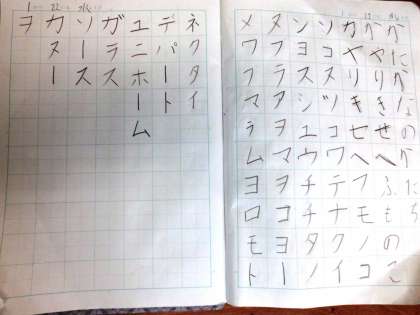 べたべなのべたち
べやりきせへふものこ
カヤリキセへフモノコ
ソコスツコワテナクイ
ンヨヌシユウチチタノ
タフラアヲマヲコヨー
メワフマラムヨロモト
ネクタイ
デパート
ユニホーム
ガラス
ソース
カヌー
ヲ